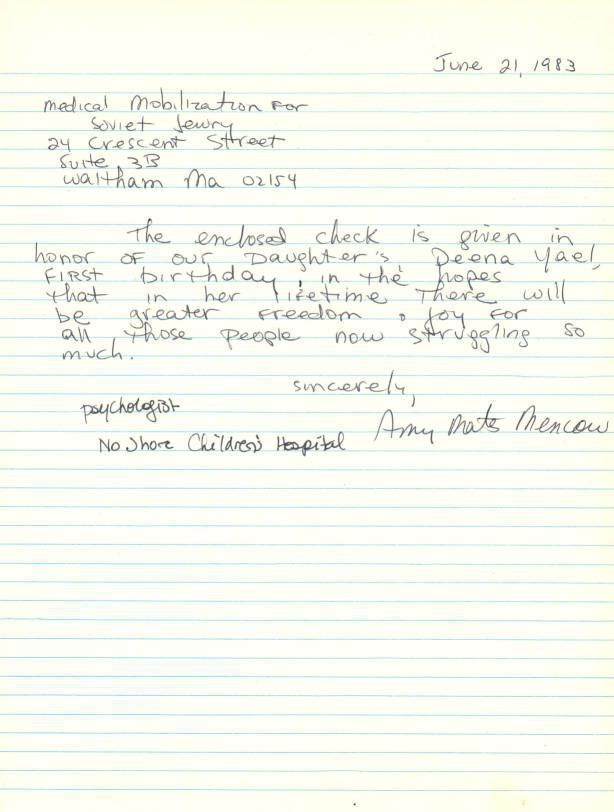 June 21, 1983
medical Mobilization For
Soviet Jewry
24 Crescent Street
Suite 3B
Waltham Ma 02154
The enclosed check is given in
honor of our Daughter's, Deena Yael,
FIRST birthday, in the hopes
that in her lifetime There will
be greater Freedom & Joy For
all those people now struggling so
much.
sincerely,
psychologist
Amy Mats Mencow
No Shore Children's Hospital